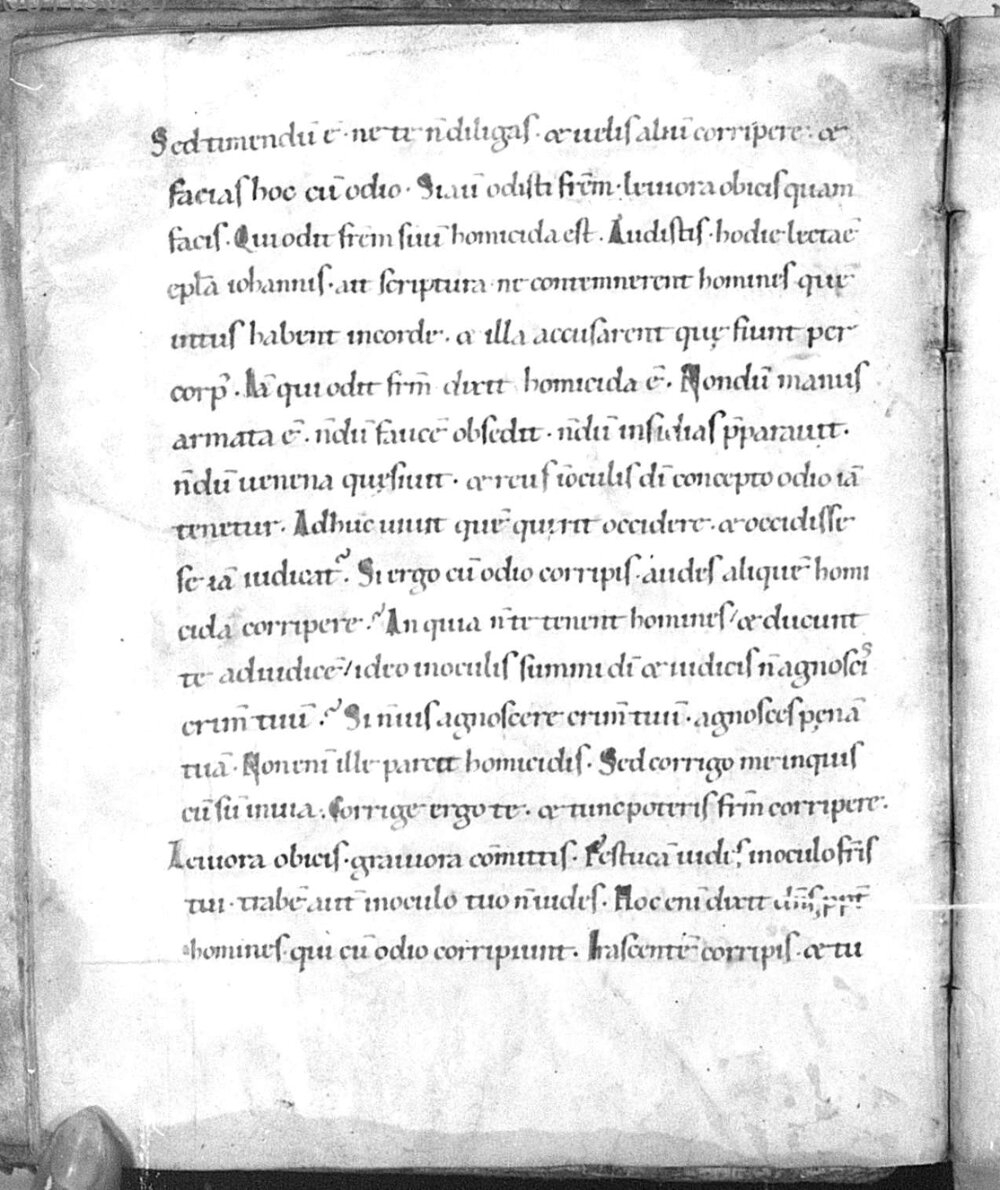 Sed timendū ē· ne te n̄ diligas· & uelis aliū corripere· &
facias hoc cū odio· Si aū odisti frēm· leuiora obicis quam
facis· Qui odit frēm suū homicida est. Audistis· hodie lectāe
epl̄a iohannis· ait scriptura· ne contemnerent homines quę
intus habent incorde· & illa accusarent quę fiunt per
corp᷒. Iā qui odit frm̄ dixit homicida ē. Nondū manus
armata ē. n̄dū faucē obsedit· n̄dū insidias p̄parauit·
n̄dū uenena quęsiuit· & reus īoculis dī concepto odio iā
tenetur. Adhuc uiuit quē quęrit occidere· & occidisse
se iā iudicat᷑. Si ergo cū odio corripis· audes aliquē homi
cidā corripere? An quia n̄ te tenent homines/ & ducunt
te adiudicē/ ideo inoculis summi dī & iudicis n̄ agnosci᷑
crim̄ tuū? Si n̄ uis agnoscere crim̄ tuū· agnosces pęnā
tuā· Non enī ille parcit homicidis. Sed corrigo me inquis
cū sū inuia. Corrige ergo te· & tunc poteris frm̄ corripere.
Leuiora obicis· grauiora cōmittis. Festucā uides inoculo fr̄is
tui· trabē aut̄ inoculo tuo n̄ uides. Hoc enī dixit dn̄s ppt̄
homines qui cū odio corripiunt. Irascentē corripis· & tu